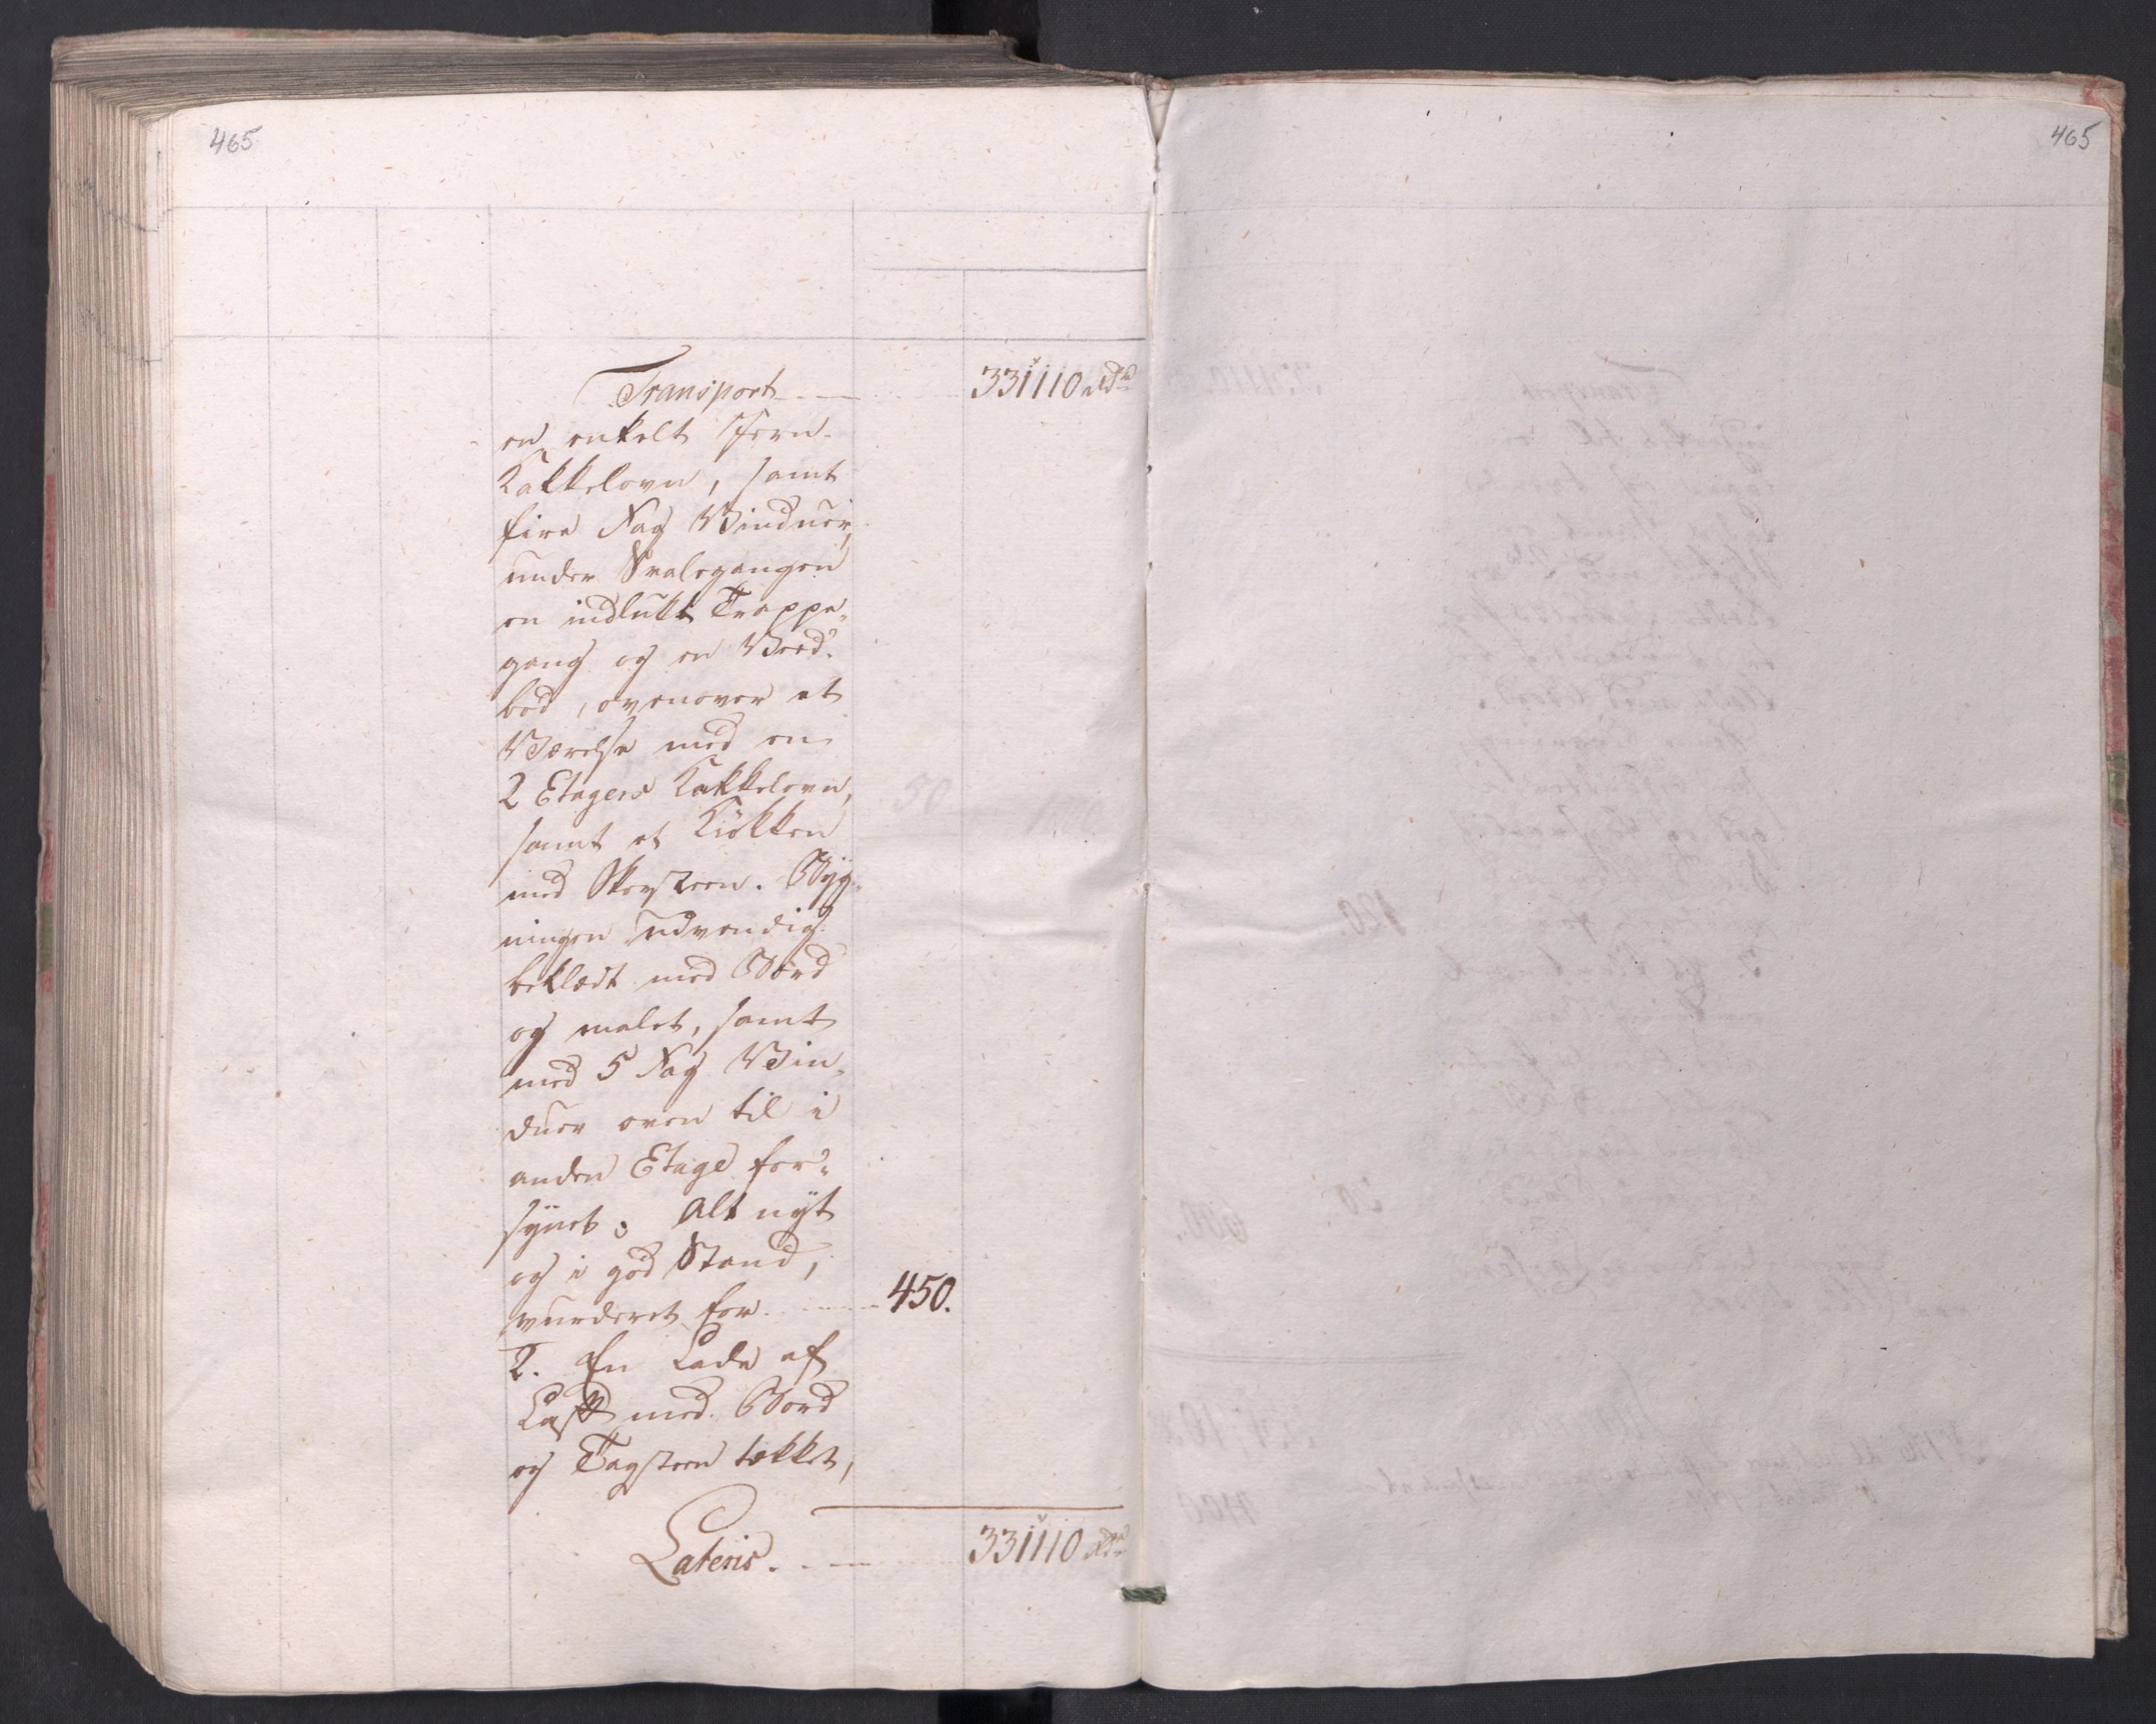 465
465
Transport 331110 Rdr
en enkelt Jern-
Kakkelovn, samt
fire Fag Vinduer,
under Svalegangen
en indlukt Trappe-
gang og en Ved-
bod, ovenover et
Værelse med en
2 Etagers Kakkelovn,
samt et Kiökken
med Skorsteen. Byg-
ningen udvendig
beklædt med Bord
og malet, samt
med 5 Fag Vin-
duer oven til i
anden Etage for-
synet. Alt nyt
og i god Stand,
vurderet for 450.
2. En Lade af
med Bord
og Tagsteen tækket,
Lateris. 331110 Rdr